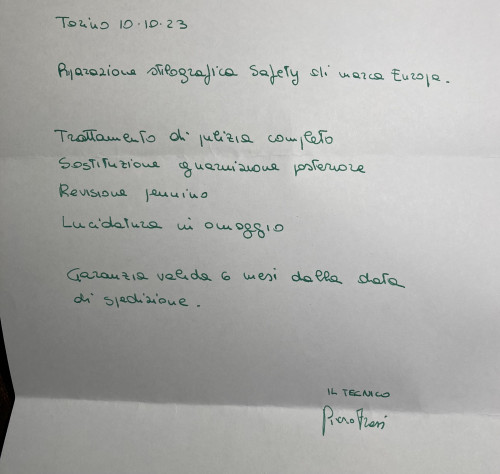 Torino 10.10.23
Riparazione stilografica Safety di marca Europa.
Trattamento di pulizia completo
Sostituzione guarnizione posteriore
Revisione pennino
Lucidatura in omaggio
Garanzia valida 6 mesi dalla data
di spedizione.
IL TECNICO
Piero